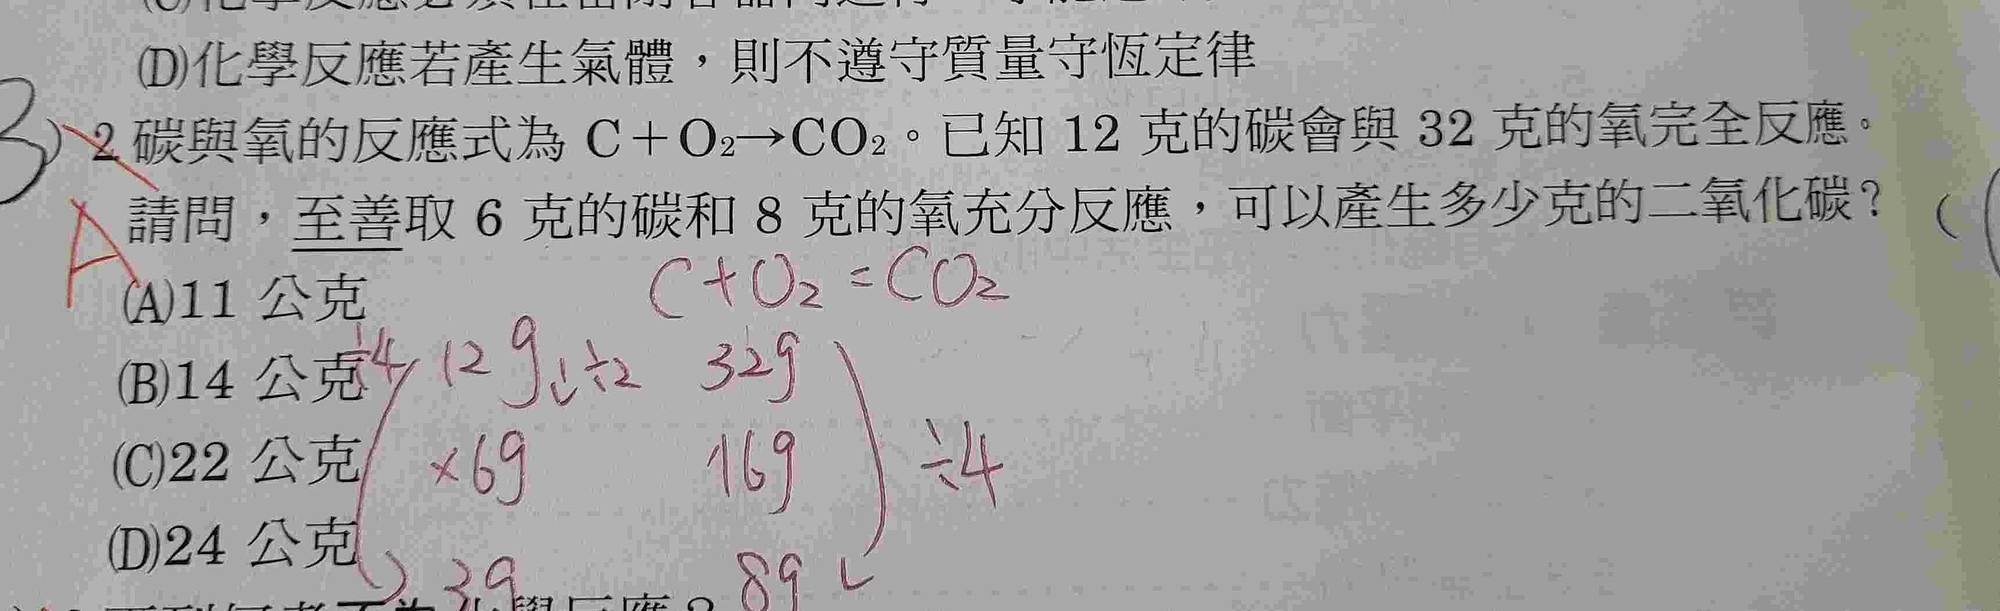 (D)化學反應若產生氣體，則不遵守質量守恆定律
B) 2 碳與氧的反應式為 C＋O₂→CO₂。已知 12 克的碳會與 32 克的氧完全反應。
A 請問，至善取 6 克的碳和 8 克的氧充分反應，可以產生多少克的二氧化碳？ (
(A)11 公克
C+O₂=CO₂
(B)14 公克 ÷4 12g ↓÷2 32g
(C)22 公克 ×6g 16g ÷4
(D)24 公克
3g 8g